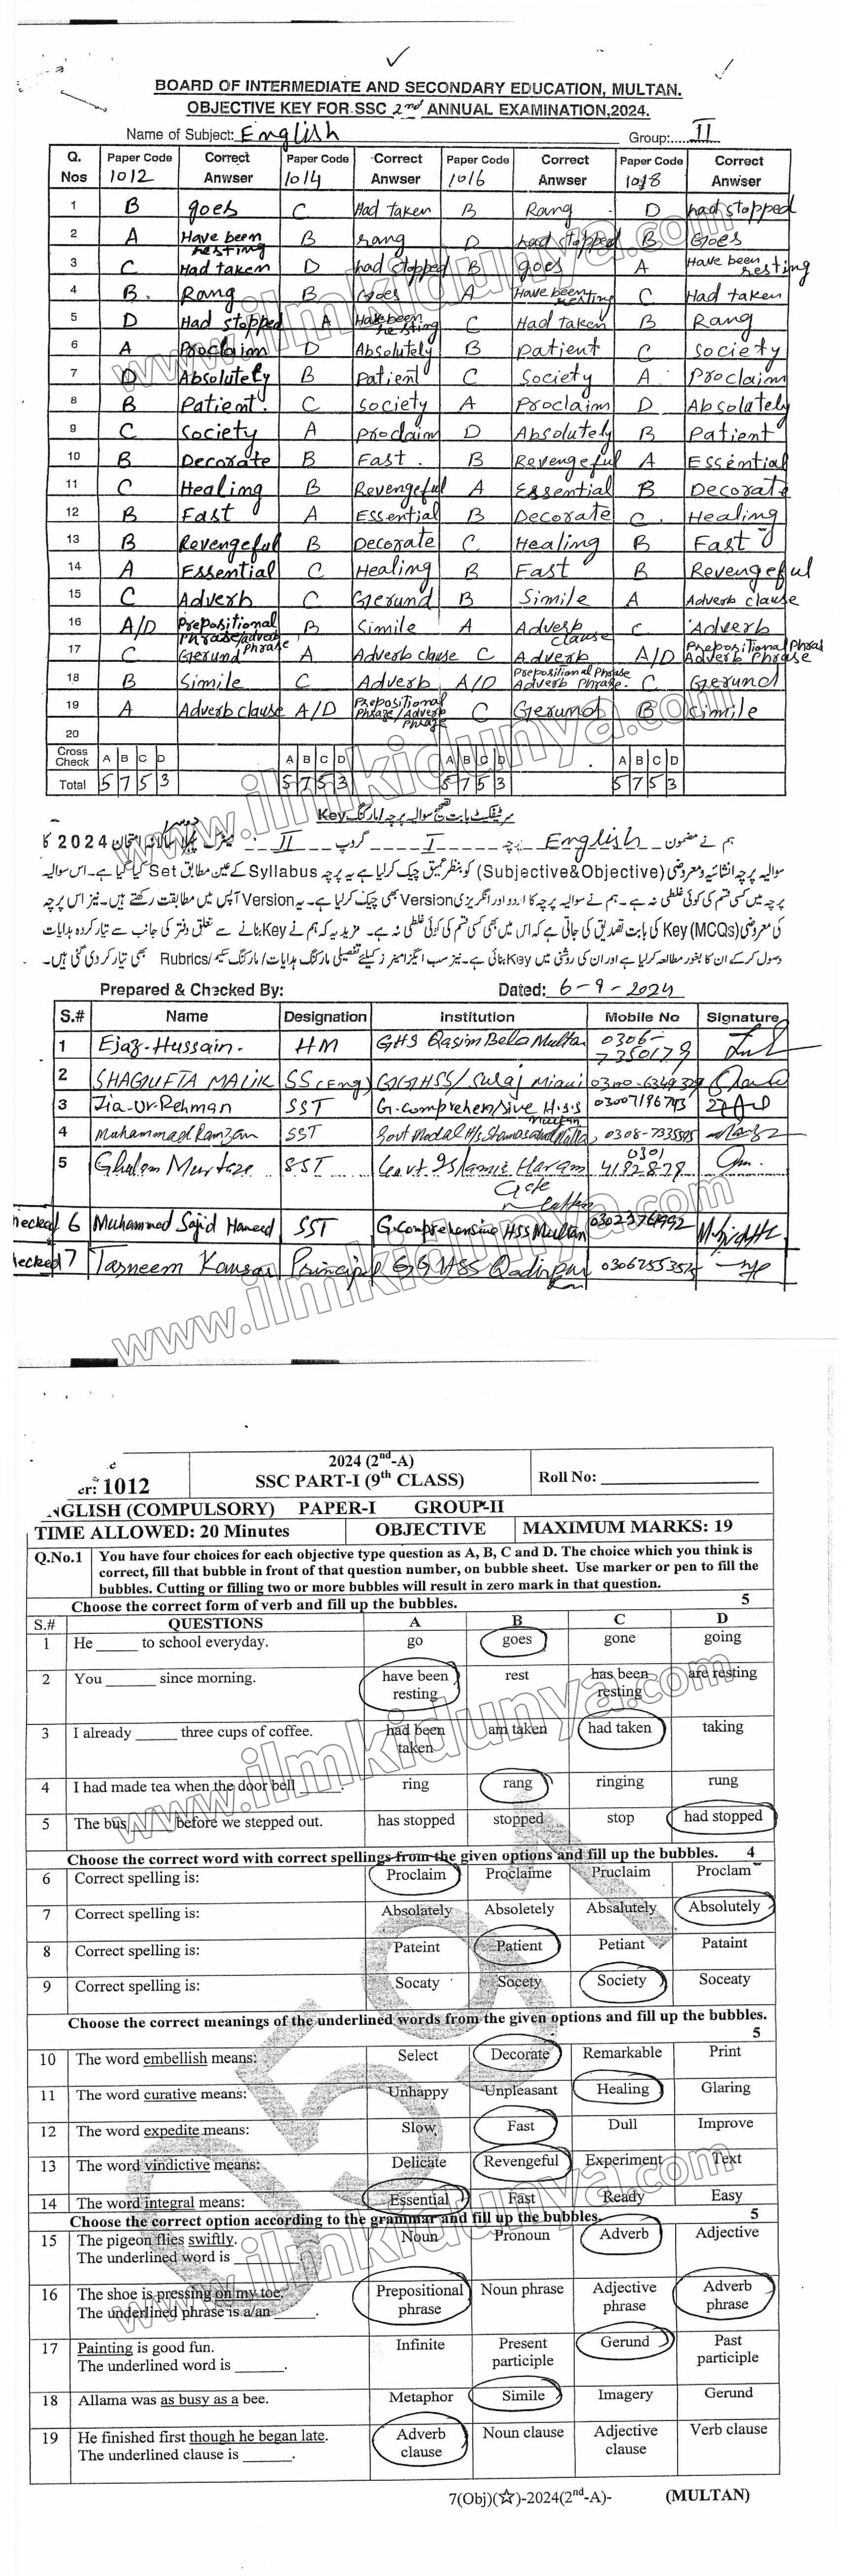 BOARD OF INTERMEDIATE AND SECONDARY EDUCATION, MULTAN.
OBJECTIVE KEY FOR SSC 2nd ANNUAL EXAMINATION,2024.
Name of Subject: English Group:.....II
Q. Nos Paper Code 1012 Correct Anwser Paper Code 1014 Correct Anwser Paper Code 1016 Correct Anwser Paper Code 1018 Correct Anwser
1 B goes C Had taken B Rang D had stopped
2 A Have been resting B rang D had stopped B Goes
3 C Had taken D had stopped B goes A Have been resting
4 B. Rang B Goes A Have been resting C Had taken
5 D Had stopped A Have been resting C Had taken B Rang
6 A Proclaim D Absolutely B Patient C Society
7 D Absolutely B Patient C Society A Proclaim
8 B Patient. C Society A Proclaim D Absolutely
9 C Society A Proclaim D Absolutely B Patient
10 B Decorate B Fast . B Revengeful A Essential
11 C Healing B Revengeful A Essential B Decorate
12 B Fast A Essential B Decorate C. Healing
13 B Revengeful B Decorate C Healing B Fast
14 A Essential C Healing B Fast B Revengeful
15 C Adverb C Gerund B Simile A Adverb clause
16 A/D Prepositional Phrase/adverb Phrase B Simile A Adverb clause C Adverb
17 C Gerund A Adverb clause C Adverb A/D Prepositional Phras Adverb Phrase
18 B Simile C Adverb A/D Prepositional Phrase Adverb Phrase. C Gerund
19 A Adverb clause A/D Prepositional Phrase/Adverb Phrase C Gerund B Simile
20
Cross Check A B C D A B C D A B C D A B C D
Total 5 7 5 3 5 7 5 3 5 7 5 3 5 7 5 3
سرٹیفکیٹ بابت تصحیح سوالیہ پرچہ/مارکنگ Key
ہم نے مضمون English پرچہ I گروپ II میٹرک سالانہ امتحان 2024 کا
سوالیہ پرچہ انشائیہ ومعروضی (Subjective&Objective) کو بنظر عمیق چیک کرلیا ہے یہ پرچہ Syllabus کے عین مطابق Set کیا گیا ہے۔ اس سوالیہ
پرچہ میں کسی قسم کی کوئی غلطی نہ ہے۔ ہم نے سوالیہ پرچہ کا اردو اور انگریزی Version بھی چیک کرلیا ہے۔ یہ Version آپس میں مطابقت رکھتے ہیں۔ نیز اس پرچہ
کی معروضی (MCQs) Key کی بابت تصدیق کی جاتی ہے کہ اس میں بھی کسی قسم کی کوئی غلطی نہ ہے۔ مزید یہ کہ ہم نے Key بنانے سے متعلق دفتر کی جانب سے تیار کردہ ہدایات
وصول کرکے ان کا بغور مطالعہ کرلیا ہے اور ان کی روشنی میں Key بنائی ہے۔ نیز سب ایگزامینرز کیلئے تفصیلی مارکنگ ہدایات/مارکنگ سکیم/Rubrics بھی تیار کردی گئی ہیں۔
Prepared & Checked By: Dated: 6-9-2024
S.# Name Designation Institution Mobile No Signature
1 Ejaz-Hussain. HM GHS Qasim Bella Multan 0306-7350179
2 SHAGUFTA MALIK SS(Eng) GGHSS/ Suraj Miani 0300-6349329
3 Zia-Ur-Rehman SST G.comprehensive H.S.S Multan 03007196743
4 Muhammad Ramzan SST Govt Model H/s 0308-7335595
5 Ghulam Murtaza SST Govt Islamia Haram Gate Multan 0301 4182878
hecked 6 Muhammad Sajid Hameed SST G.Comprehensive HSS Multan
hecked 7 Tasneem Kausar Principal GGHSS Qadirpur Ran
www.ilmkidunya.com
er: 1012 2024 (2nd-A) SSC PART-I (9th CLASS) Roll No: ____________
NGLISH (COMPULSORY) PAPER-I GROUP-II
TIME ALLOWED: 20 Minutes OBJECTIVE MAXIMUM MARKS: 19
Q.No.1 You have four choices for each objective type question as A, B, C and D. The choice which you think is
correct, fill that bubble in front of that question number, on bubble sheet. Use marker or pen to fill the
bubbles. Cutting or filling two or more bubbles will result in zero mark in that question.
Choose the correct form of verb and fill up the bubbles. 5
S.# QUESTIONS A B C D
1 He _____ to school everyday. go goes gone going
2 You ______ since morning. have been resting rest has been resting are resting
3 I already _____ three cups of coffee. had been taken am taken had taken taking
4 I had made tea when the door bell _____. ring rang ringing rung
5 The bus _____ before we stepped out. has stopped stopped stop had stopped
Choose the correct word with correct spellings from the given options and fill up the bubbles. 4
6 Correct spelling is: Proclaim Proclaime Pruclaim Proclam
7 Correct spelling is: Absolately Absoletely Absalutely Absolutely
8 Correct spelling is: Pateint Patient Petiant Pataint
9 Correct spelling is: Socaty Socety Society Soceaty
Choose the correct meanings of the underlined words from the given options and fill up the bubbles.
5
10 The word embellish means: Select Decorate Remarkable Print
11 The word curative means: Unhappy Unpleasant Healing Glaring
12 The word expedite means: Slow Fast Dull Improve
13 The word vindictive means: Delicate Revengeful Experiment Text
14 The word integral means: Essential Fast Ready Easy
Choose the correct option according to the grammar and fill up the bubbles. 5
15 The pigeon flies swiftly. Noun Pronoun Adverb Adjective
The underlined word is ________
16 The shoe is pressing on my toe. Prepositional phrase Noun phrase Adjective phrase Adverb phrase
The underlined phrase is a/an _____.
17 Painting is good fun. Infinite Present participle Gerund Past participle
The underlined word is ______.
18 Allama was as busy as a bee. Metaphor Simile Imagery Gerund
19 He finished first though he began late. Adverb clause Noun clause Adjective clause Verb clause
The underlined clause is ______.
7(Obj)(☆)-2024(2nd-A)- (MULTAN)